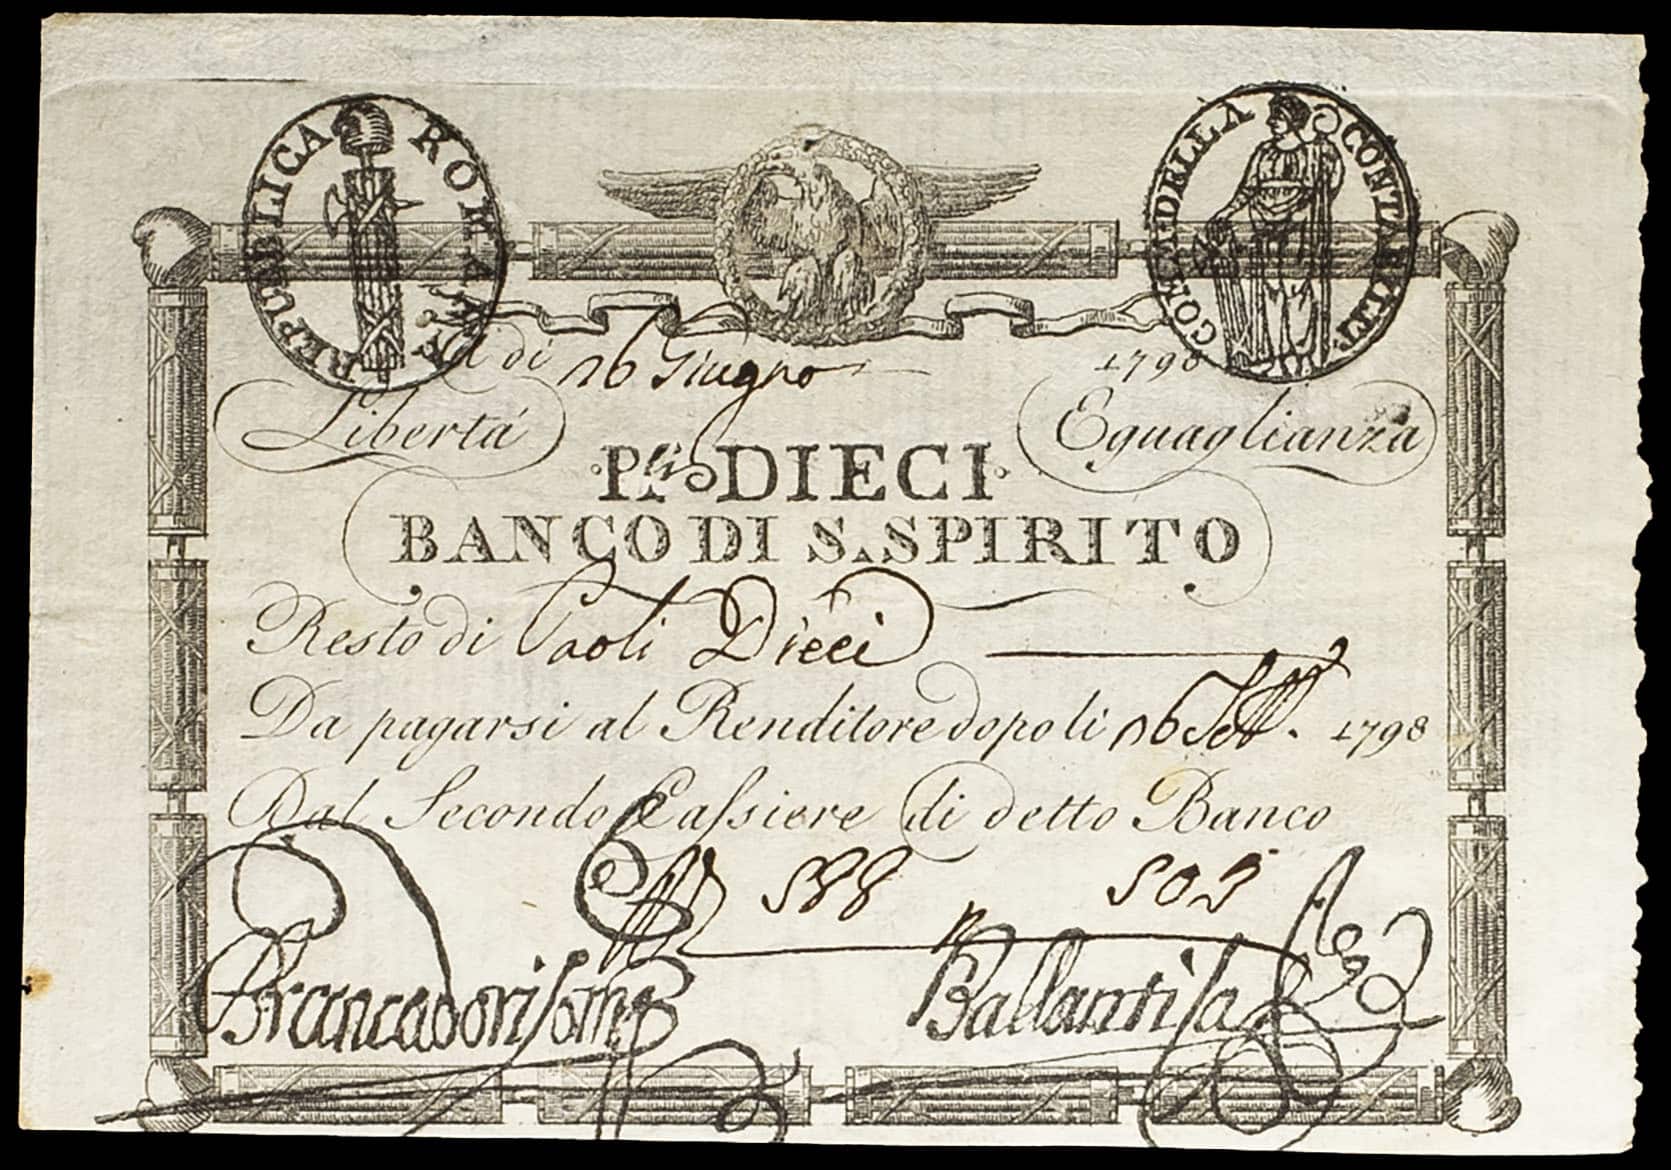 REPUBLICA ROMANA
COM. DELLA CONTABILIT.
A dì 16 Giugno 1798
Libertà Eguaglianza
P.li DIECI
BANCO DI S. SPIRITO
Resto di Paoli Dieci
Da pagarsi al Renditore dopo li 16 Sett. 1798
Dal Secondo Cassiere di detto Banco
588 505